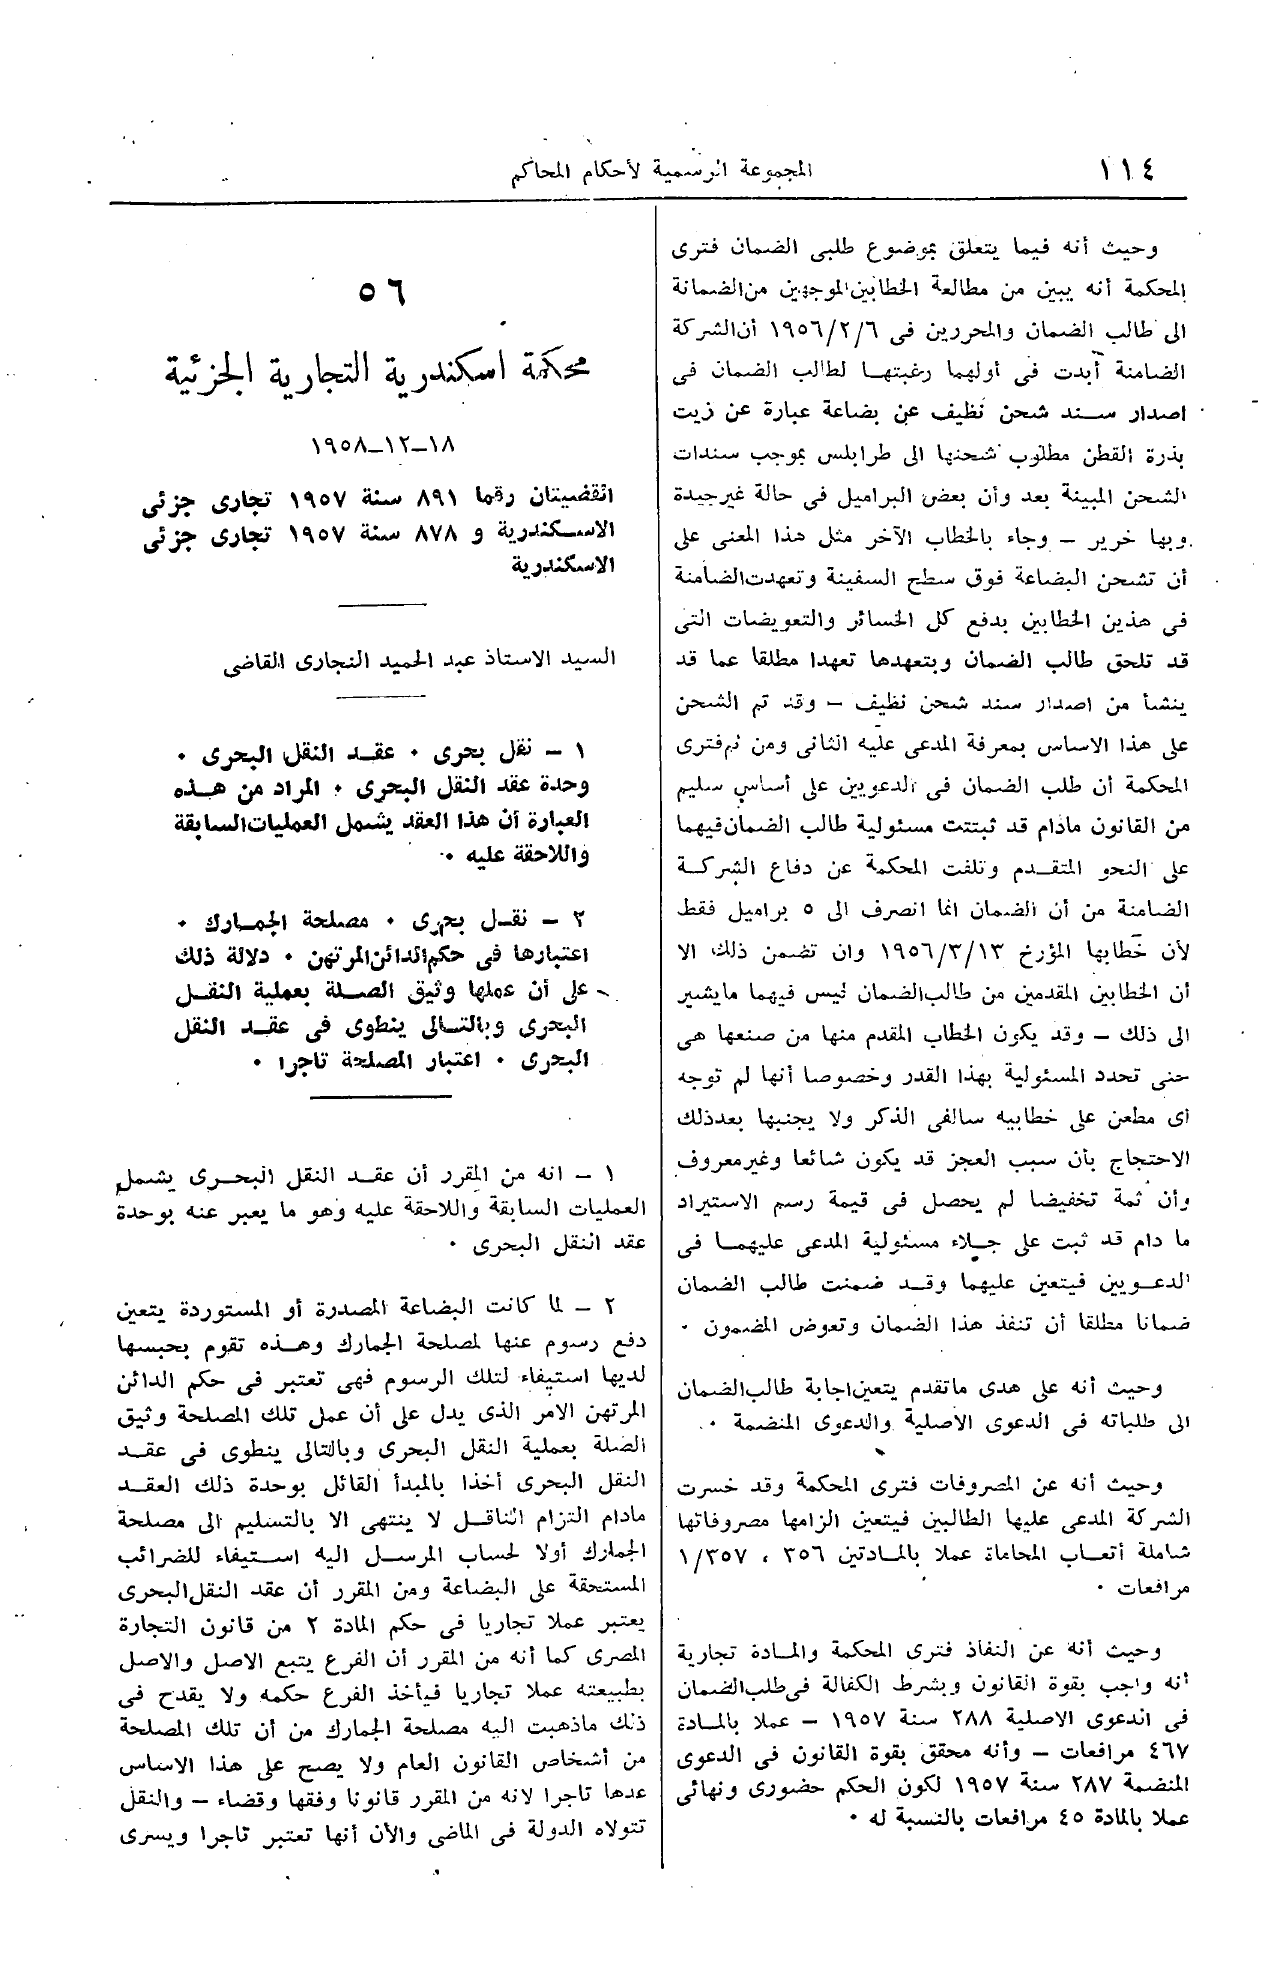 ١١٤
المجموعة الرسمية لأحكام المحاكم
وحيث أنه فيما يتعلق بموضوع طلبى الضمان فترى
المحكمة أنه يبين من مطالعة الخطابين الموجهين من الضمانة
الى طالب الضمان والمحررين فى ١٩٥٦/٢/٦ أن الشركة
الضامنة أبدت فى أولهما رغبتها لطالب الضمان فى
اصدار سند شحن نظيف عن بضاعة عبارة عن زيت
بذرة القطن مطلوب شحنها الى طرابلس بموجب سندات
الشحن المبينة بعد وأن بعض البراميل فى حالة غير جيدة
وبها خرير – وجاء بالخطاب الآخر مثل هذا المعنى على
أن تشحن البضاعة فوق سطح السفينة وتعهدت الضامنة
فى هذين الخطابين بدفع كل الخسائر والتعويضات التى
قد تلحق طالب الضمان وبتعهدها تعهدا مطلقا عما قد
ينشأ من اصدار سند شحن نظيف – وقد تم الشحن
على هذا الاساس بمعرفة المدعى عليه الثانى ومن ثم فترى
المحكمة أن طلب الضمان فى الدعويين على أساس سليم
من القانون مادام قد ثبتت مسئولية طالب الضمان فيهما
على النحو المتقدم وتلفت المحكمة عن دفاع الشركة
الضامنة من أن الضمان انما انصرف الى ٥ براميل فقط
لأن خطابها المؤرخ ١٩٥٦/٣/١٣ وان تضمن ذلك الا
أن الخطابين المقدمين من طالب الضمان ليس فيهما ما يشير
الى ذلك – وقد يكون الخطاب المقدم منها من صنعها هى
حتى تحدد المسئولية بهذا القدر وخصوصا أنها لم توجه
أى مطعن على خطابيه سالفى الذكر ولا يجنبها بعد ذلك
الاحتجاج بأن سبب العجز قد يكون شائعا وغير معروف
وأن ثمة تخفيضا لم يحصل فى قيمة رسم الاستيراد
ما دام قد ثبت على جلاء مسئولية المدعى عليهما فى
الدعويين فيتعين عليهما وقد ضمنت طالب الضمان
ضمانا مطلقا أن تنفذ هذا الضمان وتعوض المضمون ٠
وحيث أنه على هدى ماتقدم يتعين اجابة طالب الضمان
الى طلباته فى الدعوى الاصلية والدعوى المنضمة ٠
وحيث أنه عن المصروفات فترى المحكمة وقد خسرت
الشركة المدعى عليها الطالبين فيتعين الزامها مصروفاتها
شاملة أتعاب المحاماة عملا بالمادتين ٣٥٦ ، ١/٣٥٧
مرافعات ٠
وحيث أنه عن النفاذ فترى المحكمة والمادة تجارية
أنه واجب بقوة القانون وبشرط الكفالة فى طلب الضمان
فى الدعوى الاصلية ٢٨٨ سنة ١٩٥٧ – عملا بالمادة
٤٦٧ مرافعات – وأنه محقق بقوة القانون فى الدعوى
المنضمة ٢٨٧ سنة ١٩٥٧ لكون الحكم حضورى ونهائى
عملا بالمادة ٤٥ مرافعات بالنسبة له ٠
٥٦
محكمة اسكندرية التجارية الجزئية
١٨–١٢–١٩٥٨
القضيتان رقما ٨٩١ سنة ١٩٥٧ تجارى جزئى
الاسكندرية و ٨٧٨ سنة ١٩٥٧ تجارى جزئى
الاسكندرية
السيد الاستاذ عبد الحميد النجارى القاضى
١ – نقل بحرى ٠ عقد النقل البحرى ٠
وحدة عقد النقل البحرى ٠ المراد من هذه
العبارة أن هذا العقد يشمل العمليات السابقة
واللاحقة عليه ٠
٢ – نقل بحرى ٠ مصلحة الجمارك ٠
اعتبارها فى حكم الدائن المرتهن ٠ دلالة ذلك
على أن عملها وثيق الصلة بعملية النقل
البحرى وبالتالى ينطوى فى عقد النقل
البحرى ٠ اعتبار المصلحة تاجرا ٠
١ – انه من المقرر أن عقد النقل البحرى يشمل
العمليات السابقة واللاحقة عليه وهو ما يعبر عنه بوحدة
عقد النقل البحرى ٠
٢ – لما كانت البضاعة المصدرة أو المستوردة يتعين
دفع رسوم عنها لمصلحة الجمارك وهذه تقوم بحبسها
لديها استيفاء لتلك الرسوم فهى تعتبر فى حكم الدائن
المرتهن الامر الذى يدل على أن عمل تلك المصلحة وثيق
الصلة بعملية النقل البحرى وبالتالى ينطوى فى عقد
النقل البحرى أخذا بالمبدأ القائل بوحدة ذلك العقد
مادام التزام الناقل لا ينتهى الا بالتسليم الى مصلحة
الجمارك أولا لحساب المرسل اليه استيفاء للضرائب
المستحقة على البضاعة ومن المقرر أن عقد النقل البحرى
يعتبر عملا تجاريا فى حكم المادة ٢ من قانون التجارة
المصرى كما أنه من المقرر أن الفرع يتبع الاصل والاصل
بطبيعته عملا تجاريا فيأخذ الفرع حكمه ولا يقدح فى
ذلك ماذهبت اليه مصلحة الجمارك من أن تلك المصلحة
من أشخاص القانون العام ولا يصح على هذا الاساس
عدها تاجرا لانه من المقرر قانونا وفقها وقضاء – والنقل
تتولاه الدولة فى الماضى والآن أنها تعتبر تاجرا ويسرى